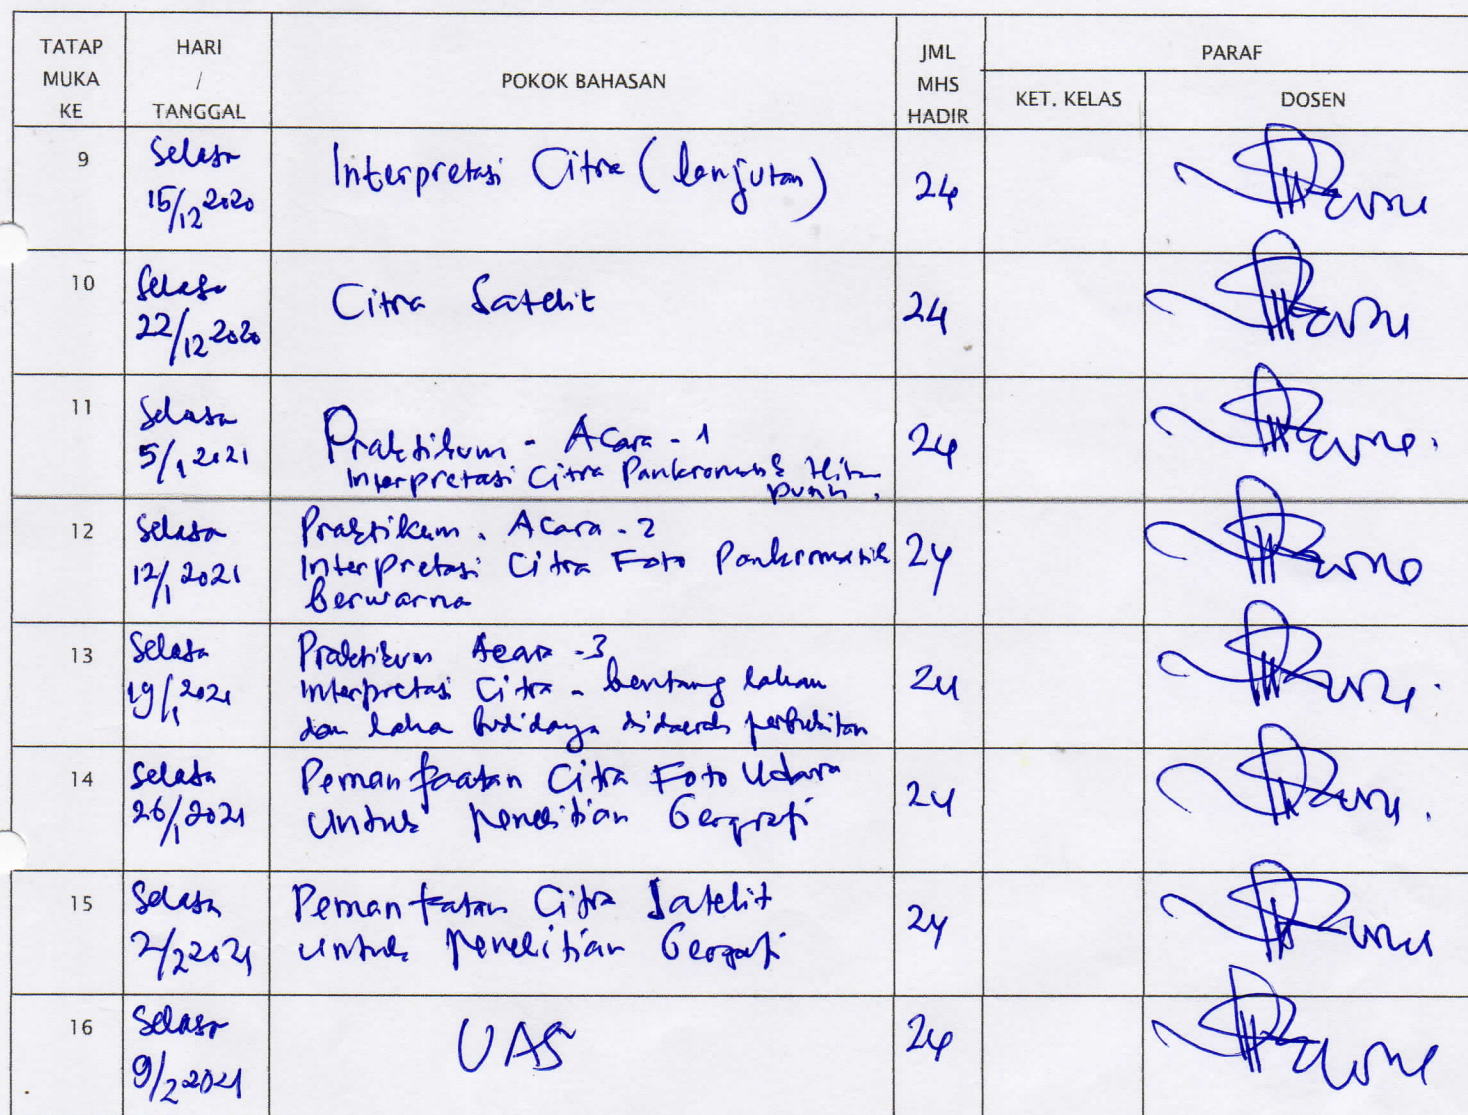 TATAP MUKA KE
HARI / TANGGAL
POKOK BAHASAN
JML MHS HADIR
PARAF
KET. KELAS
DOSEN
9
Selasa
15/12 2020
Interpretasi Citra (lanjutan)
24
10
Selasa
22/12 2020
Citra Satelit
24
11
Selasa
5/1 2021
Praktikum - Acara - 1
Interpretasi Citra Pankromatik Hitam
putih.
24
12
Selasa
12/1 2021
Praktikum. Acara - 2
Interpretasi Citra Foto Pankromatik
Berwarna
24
13
Selasa
19/1 2021
Praktikum Acara - 3
Interpretasi Citra - bentang lahan
dan laha budidaya didaerah perbukitan
24
14
Selasa
26/1 2021
Pemanfaatan Citra Foto Udara
untuk penelitian Geografi
24
15
Selasa
2/2 2021
Pemanfatan Citra Satelit
untuk penelitian Geografi
24
16
Selasa
9/2 2021
UAS
24